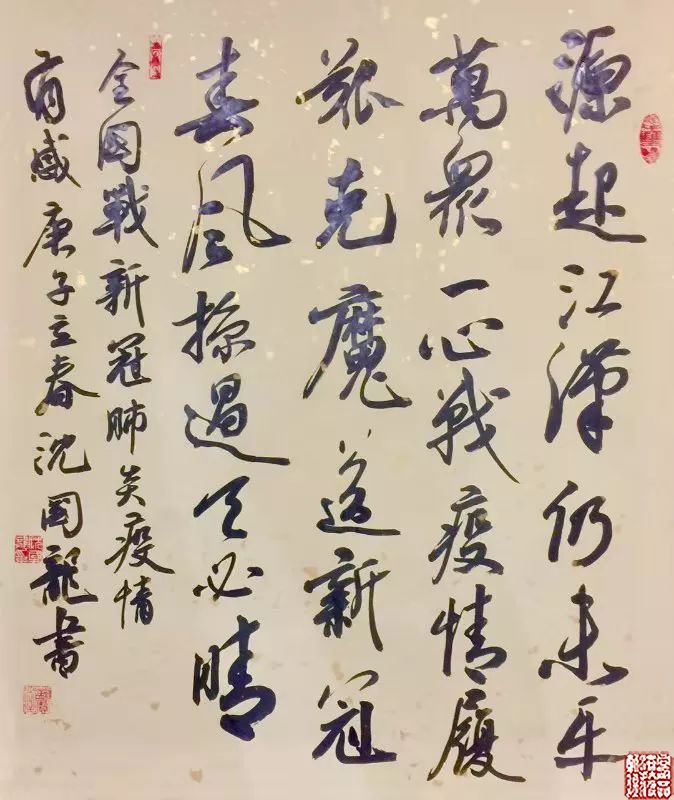 源起江漢仍未平
萬眾一心戰疫情履
艱克魔新冠
春風掠過天必晴
全國戰新冠肺炎疫情
有感庚子立春沈國龍書